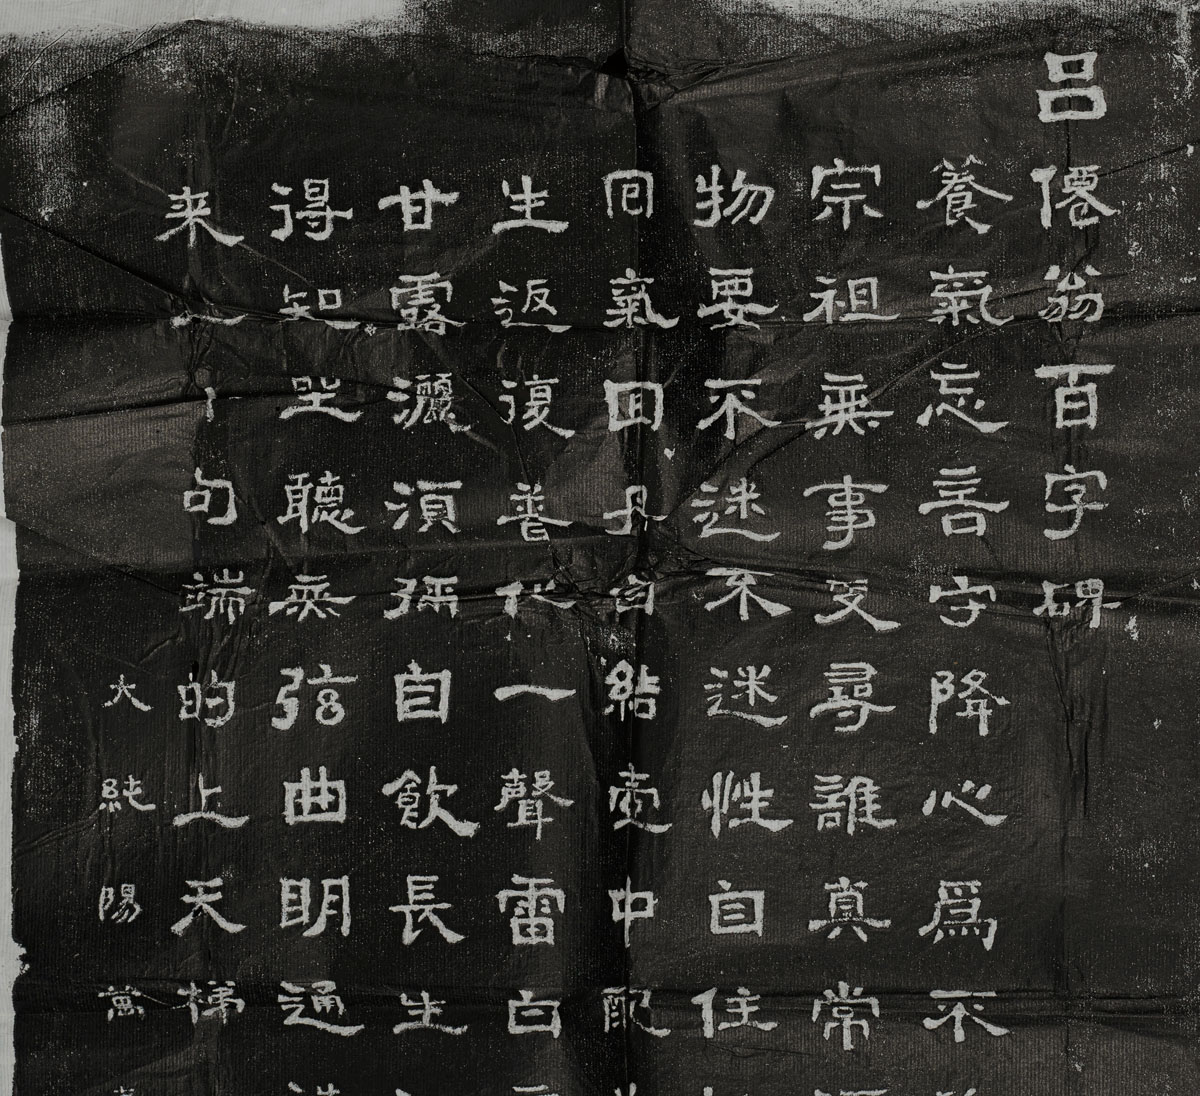 呂僊翁百字碑
養氣忘言守降心爲不
宗祖無事更尋誰真常
物要不迷不迷性自住
回氣回丹自結壺中配
生返復普化一聲雷白
甘露灑須彌自飲長生
得知坐聽無弦曲明通
来二十句端的上天梯
大純陽萬